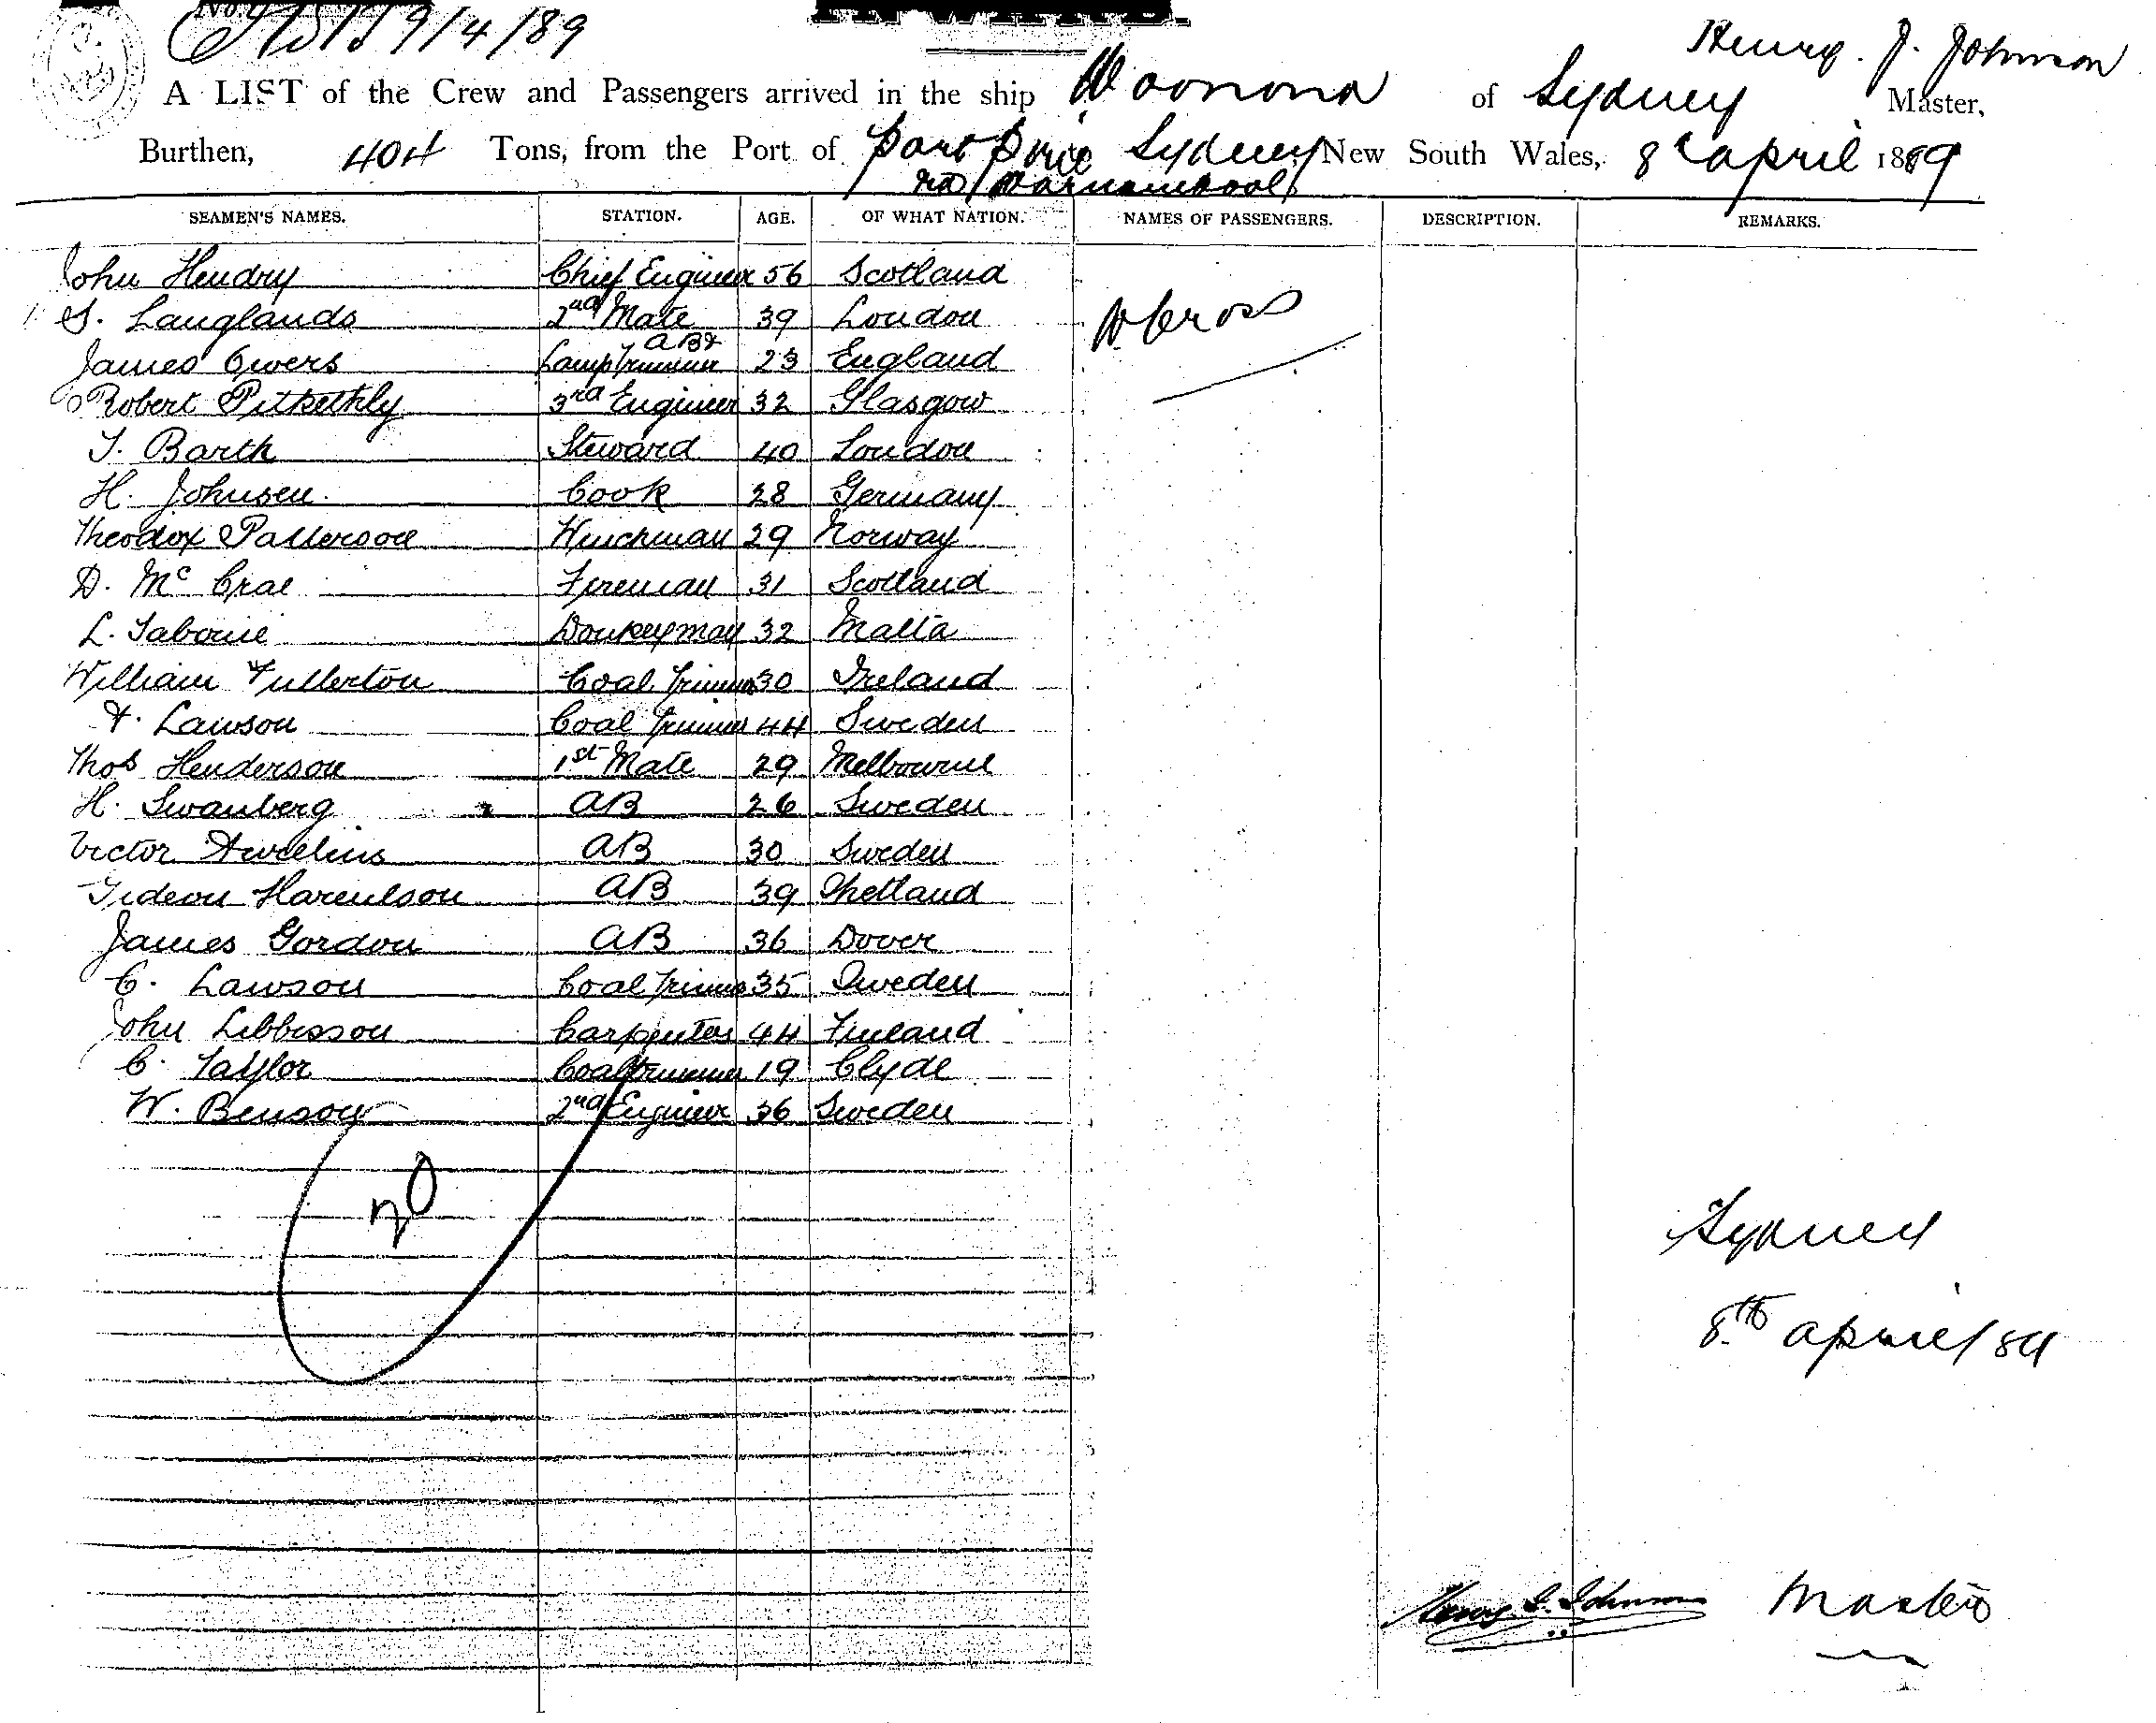 9/4/89
Henry. J. Johnson
A LIST of the Crew and Passengers arrived in the ship Woonona of Sydney Master,
Burthen, 404 Tons, from the Port of Port Pirie Sydney New South Wales, 8th April 1889
via Warnambool
SEAMEN'S NAMES. STATION. AGE. OF WHAT NATION. NAMES OF PASSENGERS. DESCRIPTION. REMARKS.
John Hendry Chief Engineer 56 Scotland
S. Langlands 2nd Mate 39 London W Cross
James Owers Lamp Trimmer AB & 23 England
Robert Pitkethly 3rd Engineer 32 Glasgow
T. Barth Steward 40 London
H. Johnsen Cook 28 Germany
Theodor Patterson Winchman 29 Norway
D. McCrae Fireman 31 Scotland
L. Tabone Donkeyman 32 Malta
William Fullerton Coal Trimmer 30 Ireland
F. Lawson Coal Trimmer 44 Sweden
Thos Henderson 1st Mate 29 Melbourne
H. Swanberg AB 26 Sweden
Victor AB 30 Sweden
Gideon AB 39 Shetland
James Gordon AB 36 Dover
C. Lawson Coal Trimmer 35 Sweden
John Libbisson Carpenter 44 Finland
C. Taylor Coal trimmer 19 Clyde
W. Benson 2nd Engineer 36 Sweden
20
Sydney
8th April 89
Henry J. Johnson Master